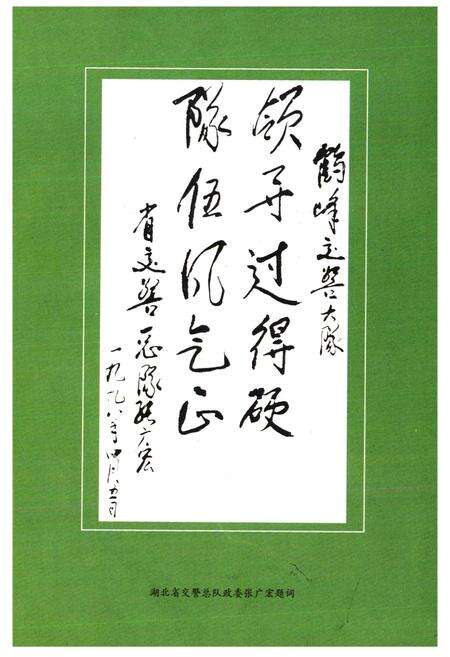 鹤峰交警大隊
领导过得硬
隊伍风气正
省交警总隊张广宏
一九九八年四月五日
湖北省交警总队政委张广宏题词